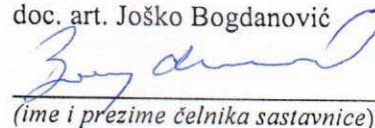 doc. art. Joško Bogdanović
(ime i prezime čelnika sastavnice)